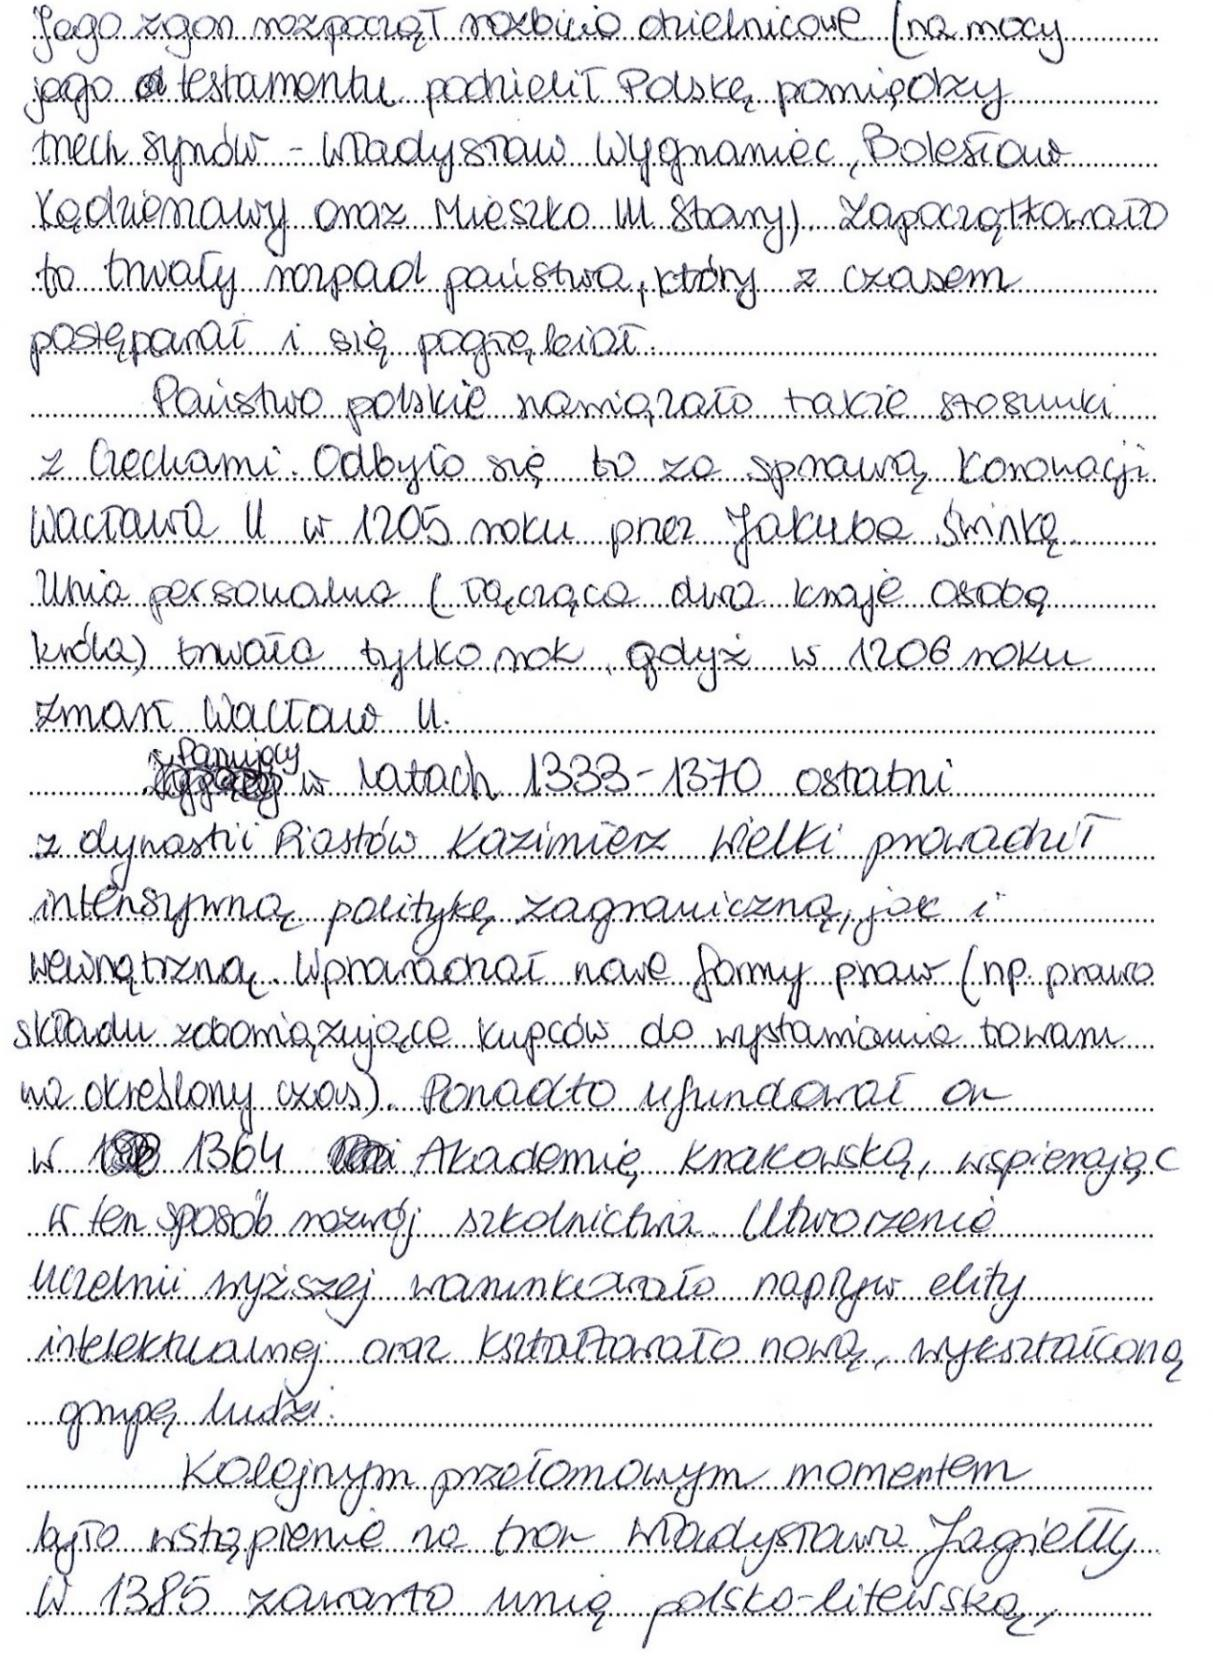 Jego zgon rozpoczął rozbicie dzielnicowe (na mocy
jego testamentu podzielił Polskę pomiędzy
trzech synów - Władysław Wygnaniec, Bolesław
Kędzierzawy oraz Mieszko III Stary). Zapoczątkowało
to trwały rozpad państwa, który z czasem
postępował i się pogłębiał.
Państwo polskie nawiązało także stosunki
z Czechami. Odbyło się to za sprawą koronacji
Wacława II w 1205 roku przez Jakuba Świnkę.
Unia personalna (łącząca dwa kraje osobą
króla) trwała tylko rok, gdyż w 1206 roku
zmarł Wacław II.
Panujący w latach 1333-1370 ostatni
z dynastii Piastów Kazimierz Wielki prowadził
intensywną politykę zagraniczną, jak i
wewnątrzną. Wprowadzał nowe formy praw (np. prawo
składu zobowiązujące kupców do wystawiania towaru
na określony czas). Ponadto ufundował on
w 1364 Akademię Krakowską, wspierając
w ten sposób rozwój szkolnictwa. Utworzenie
uczelnii wyższej warunkowało napływ elity
intelektualnej oraz kształtowało nową, wykształconą
grupę ludzi.
Kolejnym przełomowym momentem
było wstąpienie na tron Władysława Jagiełły.
W 1385 zawarto unię polsko-litewską,